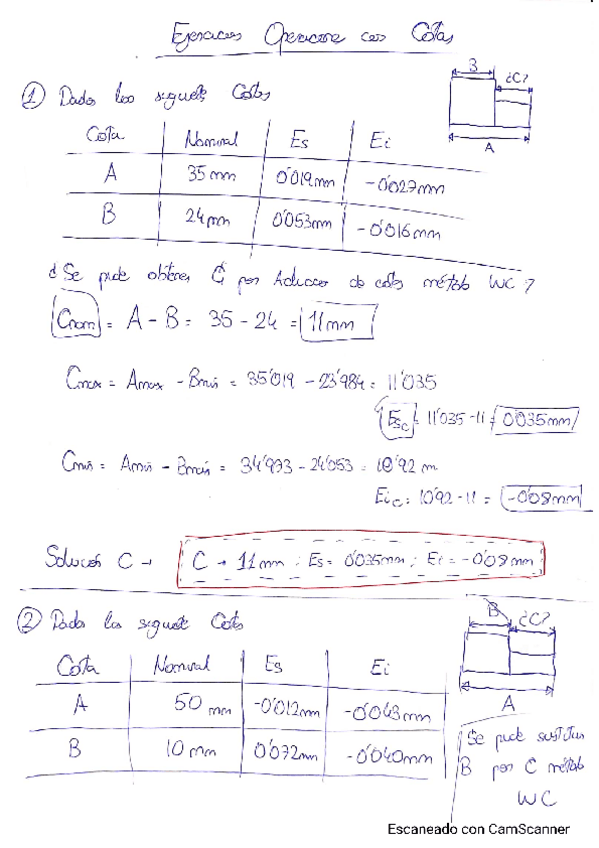 Ejercicios Operaciones con Cotas
B
¿C?
A
① Dadas las siguientes Cotas
Cota Nominal Es Ei
A 35 mm 0'019mm -0'027mm
B 24mm 0'053mm -0'016mm
¿Se puede obtener C por de cotas método WC?
Cnom = A - B = 35 - 24 = 11mm
Cmax = Amax - Bmin = 35'019 - 23'984 = 11'035
Esc = 11'035 - 11 = 0'035mm
Cmin = Amin - Bmax = 34'973 - 24'053 = 10'92 m
Eic = 10'92 - 11 = -0'08mm
Solución C → C → 11mm ; Es = 0'035mm ; Ei = -0'08mm
② Dadas las siguientes Cotas
B
¿C?
A
Cota Nominal Es Ei
A 50 mm -0'012mm -0'043mm
B 10 mm 0'072mm -0'040mm
Se puede sustituir
B por C método
WC
Escaneado con CamScanner